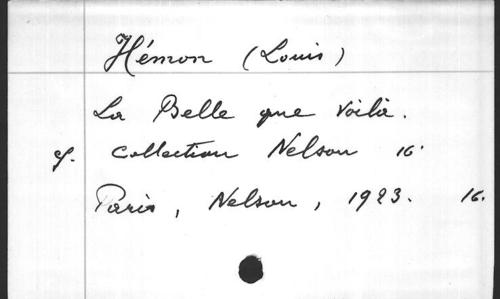 Hémon (Louis)
La Belle que voilà.
Collection Nelson 16.
Paris, Nelson, 1923. 16.